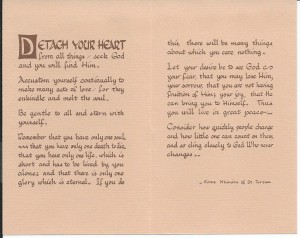 DETACH YOUR HEART
from all things · seek God
and you will find Him.
Accustom yourself continually to
make many acts of love · for they
enkindle and melt the soul.
Be gentle to all and stern with
yourself.
Remember that you have only one soul,
that you have only one death to die,
that you have only one life, which is
short and has to be lived by you
alone · and that there is only one
glory which is eternal. If you do
this, there will be many things
about which you care nothing.
Let your desire be to see God ·
your fear, that you may lose Him,
your sorrow, that you are not having
fruition of Him, your joy, that He
can bring you to Himself. Thus
you will live in great peace
Consider how quickly people change
and how little one can count on them
and so cling closely to God Who never
changes
Maxims of St. Teresa